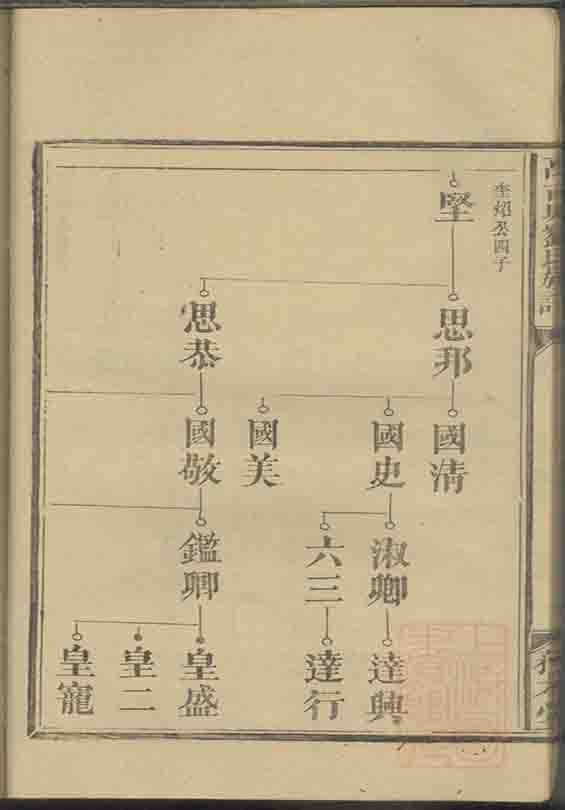 堅
思邦
思恭
國清
國史
國美
國敬
淑卿
六三
鑑卿
達興
達行
皇盛
皇二
皇寵